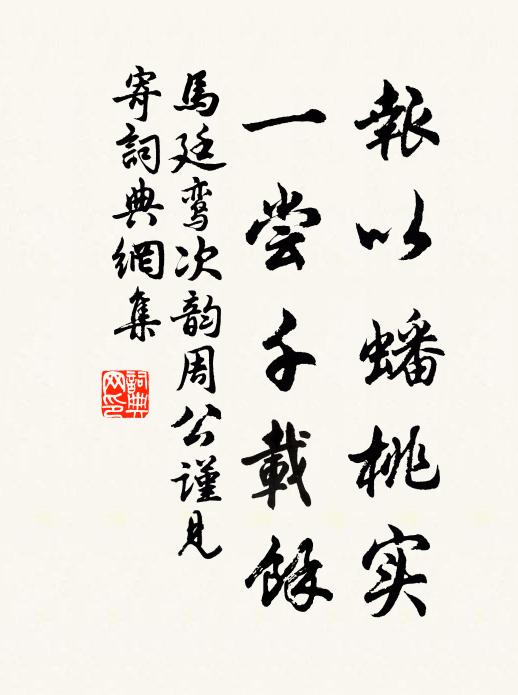 報以蟠桃实
一尝千載餘
馬廷鸾次韵周公謹見
寄詞典網集
詞典
网印